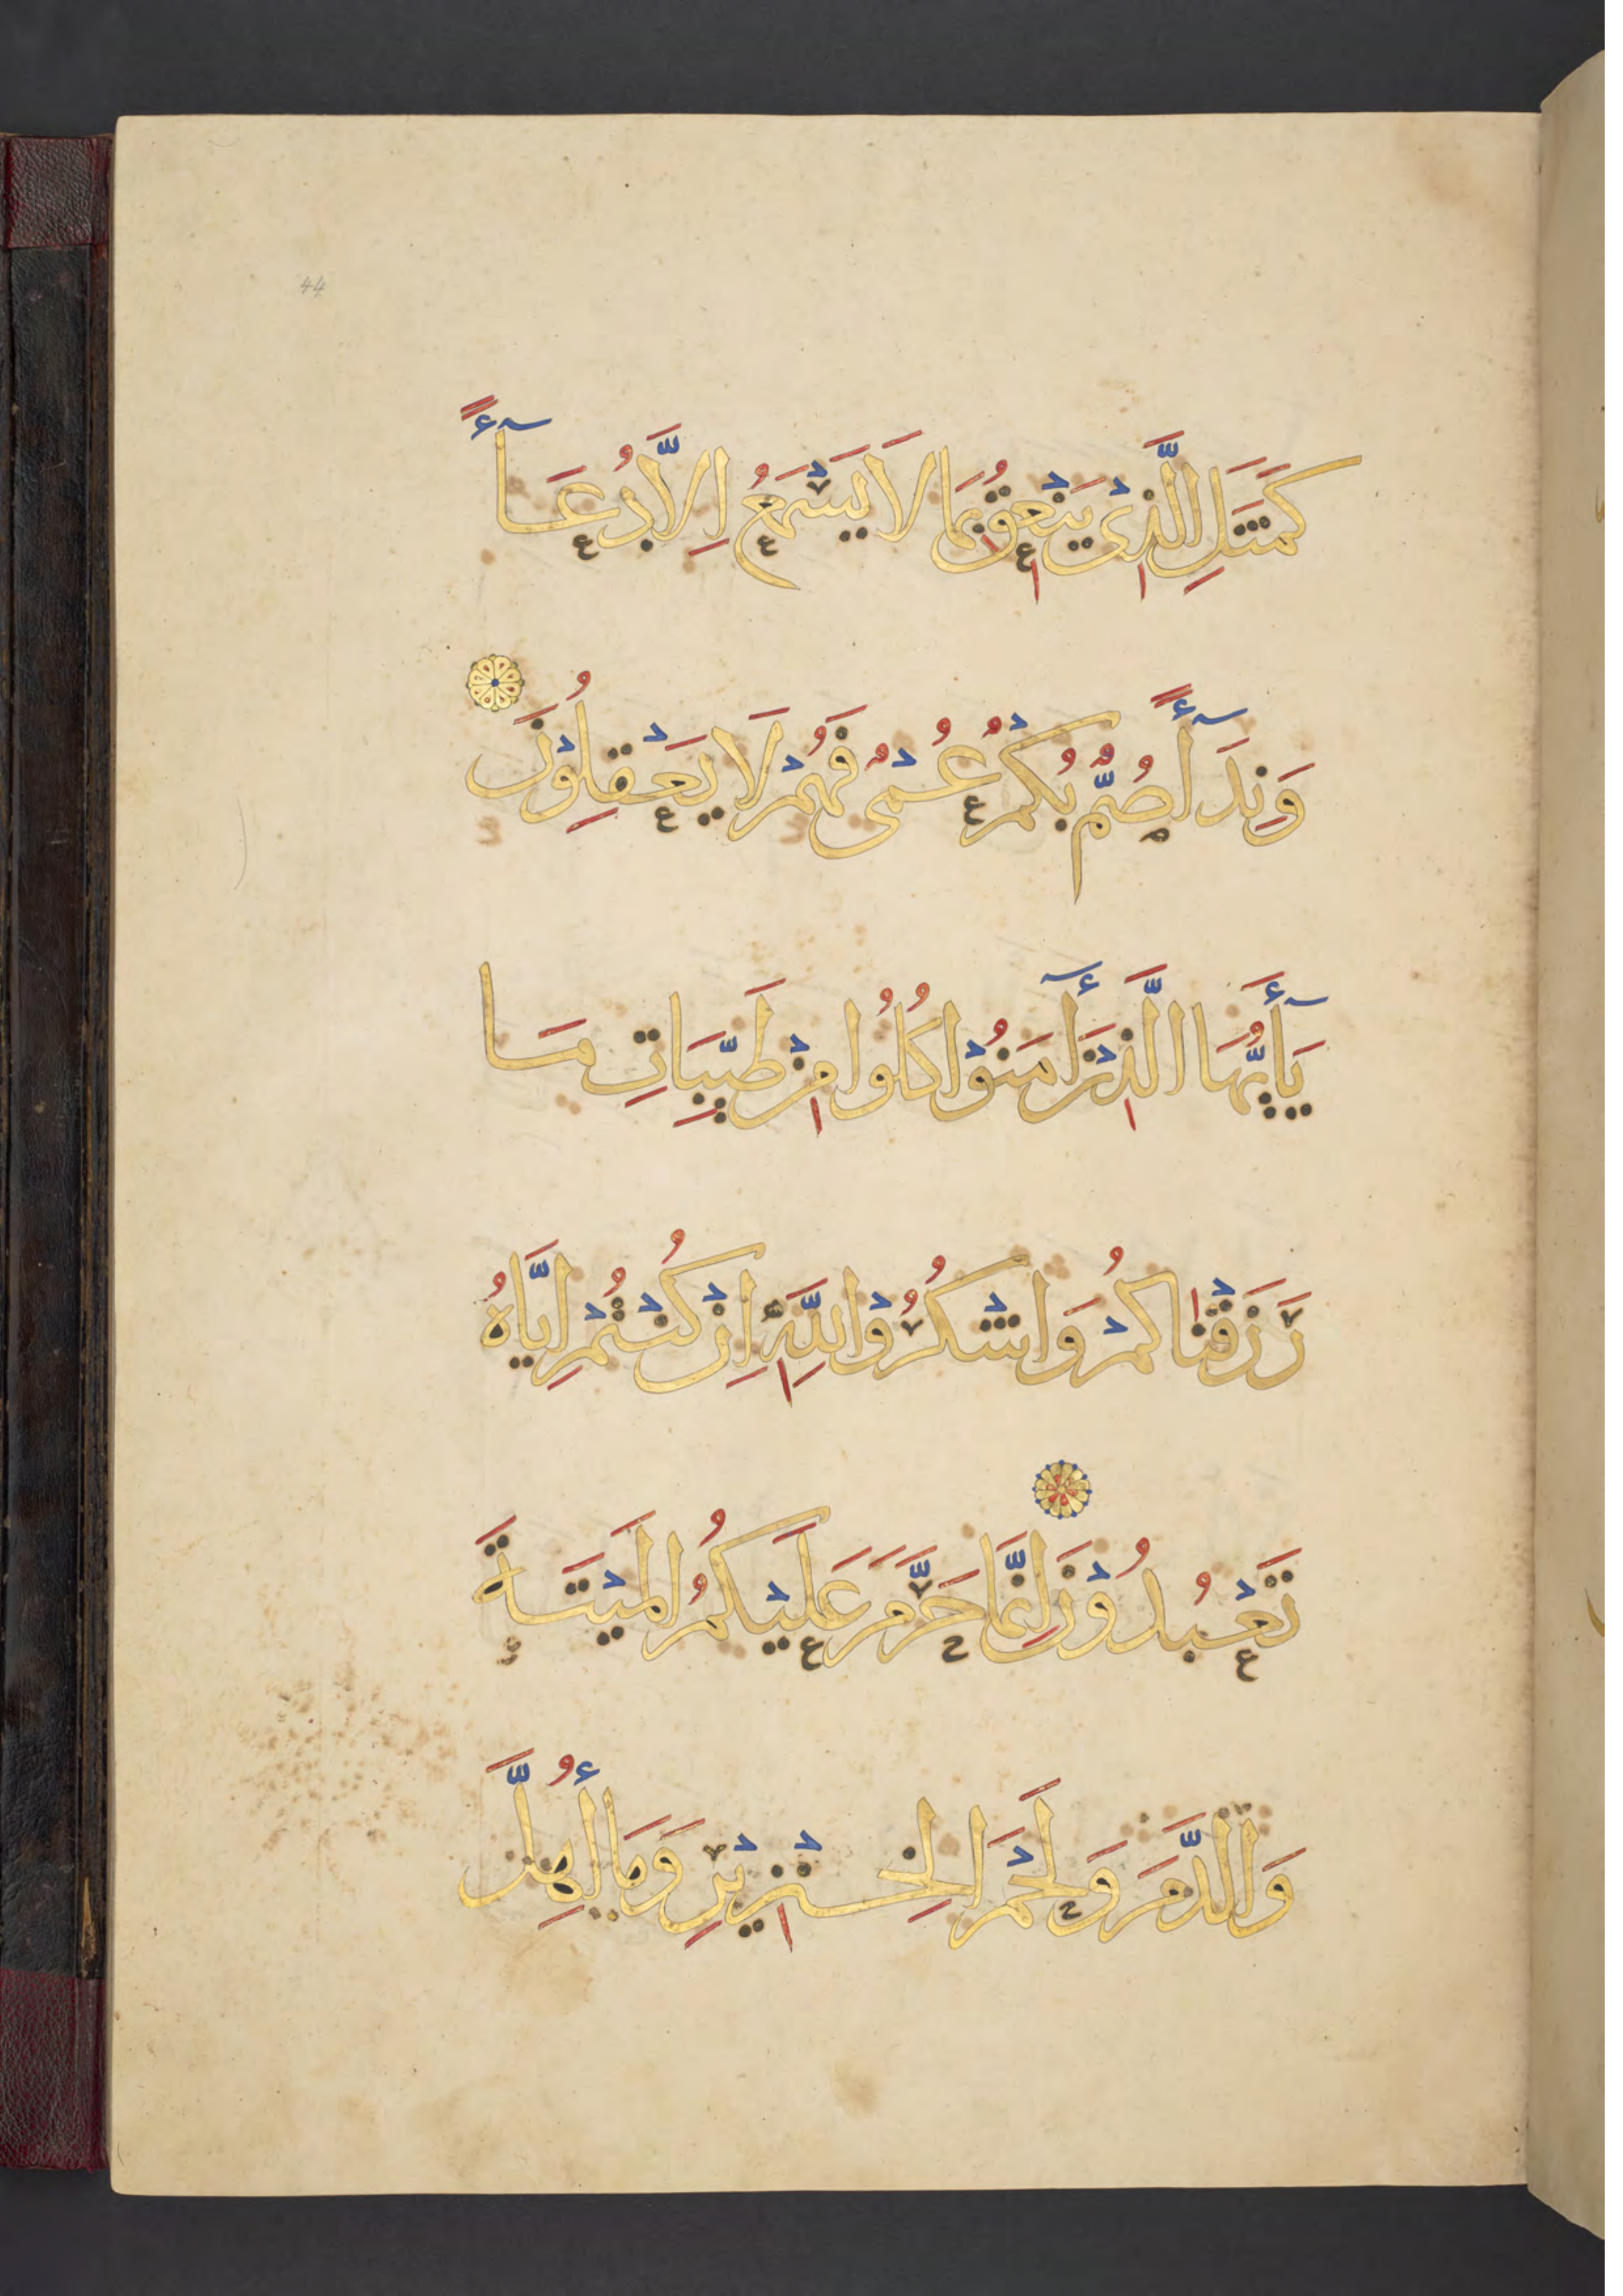 44
كَمَثَلِ الَّذِيْ يَنْعِقُ بِمَا لَا يَسْمَعُ اِلَّا دُعَآءً
وَنِدَآءً صُمٌّ بُكْمٌ عُمْيٌ فَهُمْ لَا يَعْقِلُوْنَ
يَآأَيُّهَا الَّذِيْنَ أٓمَنُوْا كُلُوا مِنْ طَيِّبَاتِ مَا
رَزَقْنَاكُمْ وَاشْكُرُوْا لِلّٰهِ اِنْ كُنْتُمْ اِيَّاهُ
تَعْبُدُوْنَ اِنَّمَا حَرَّمَ عَلَيْكُمُ الْمَيْتَةَ
وَالدَّمَ وَلَحْمَ الْخِنْزِيْرِ وَمَا أُهِلَّ